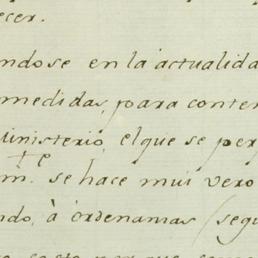 ecer.
ndose en la actualida
medidas, para conter
Ministerio, el que se per
te
m. se hace mui vero
ndo, à ordenamas (segu